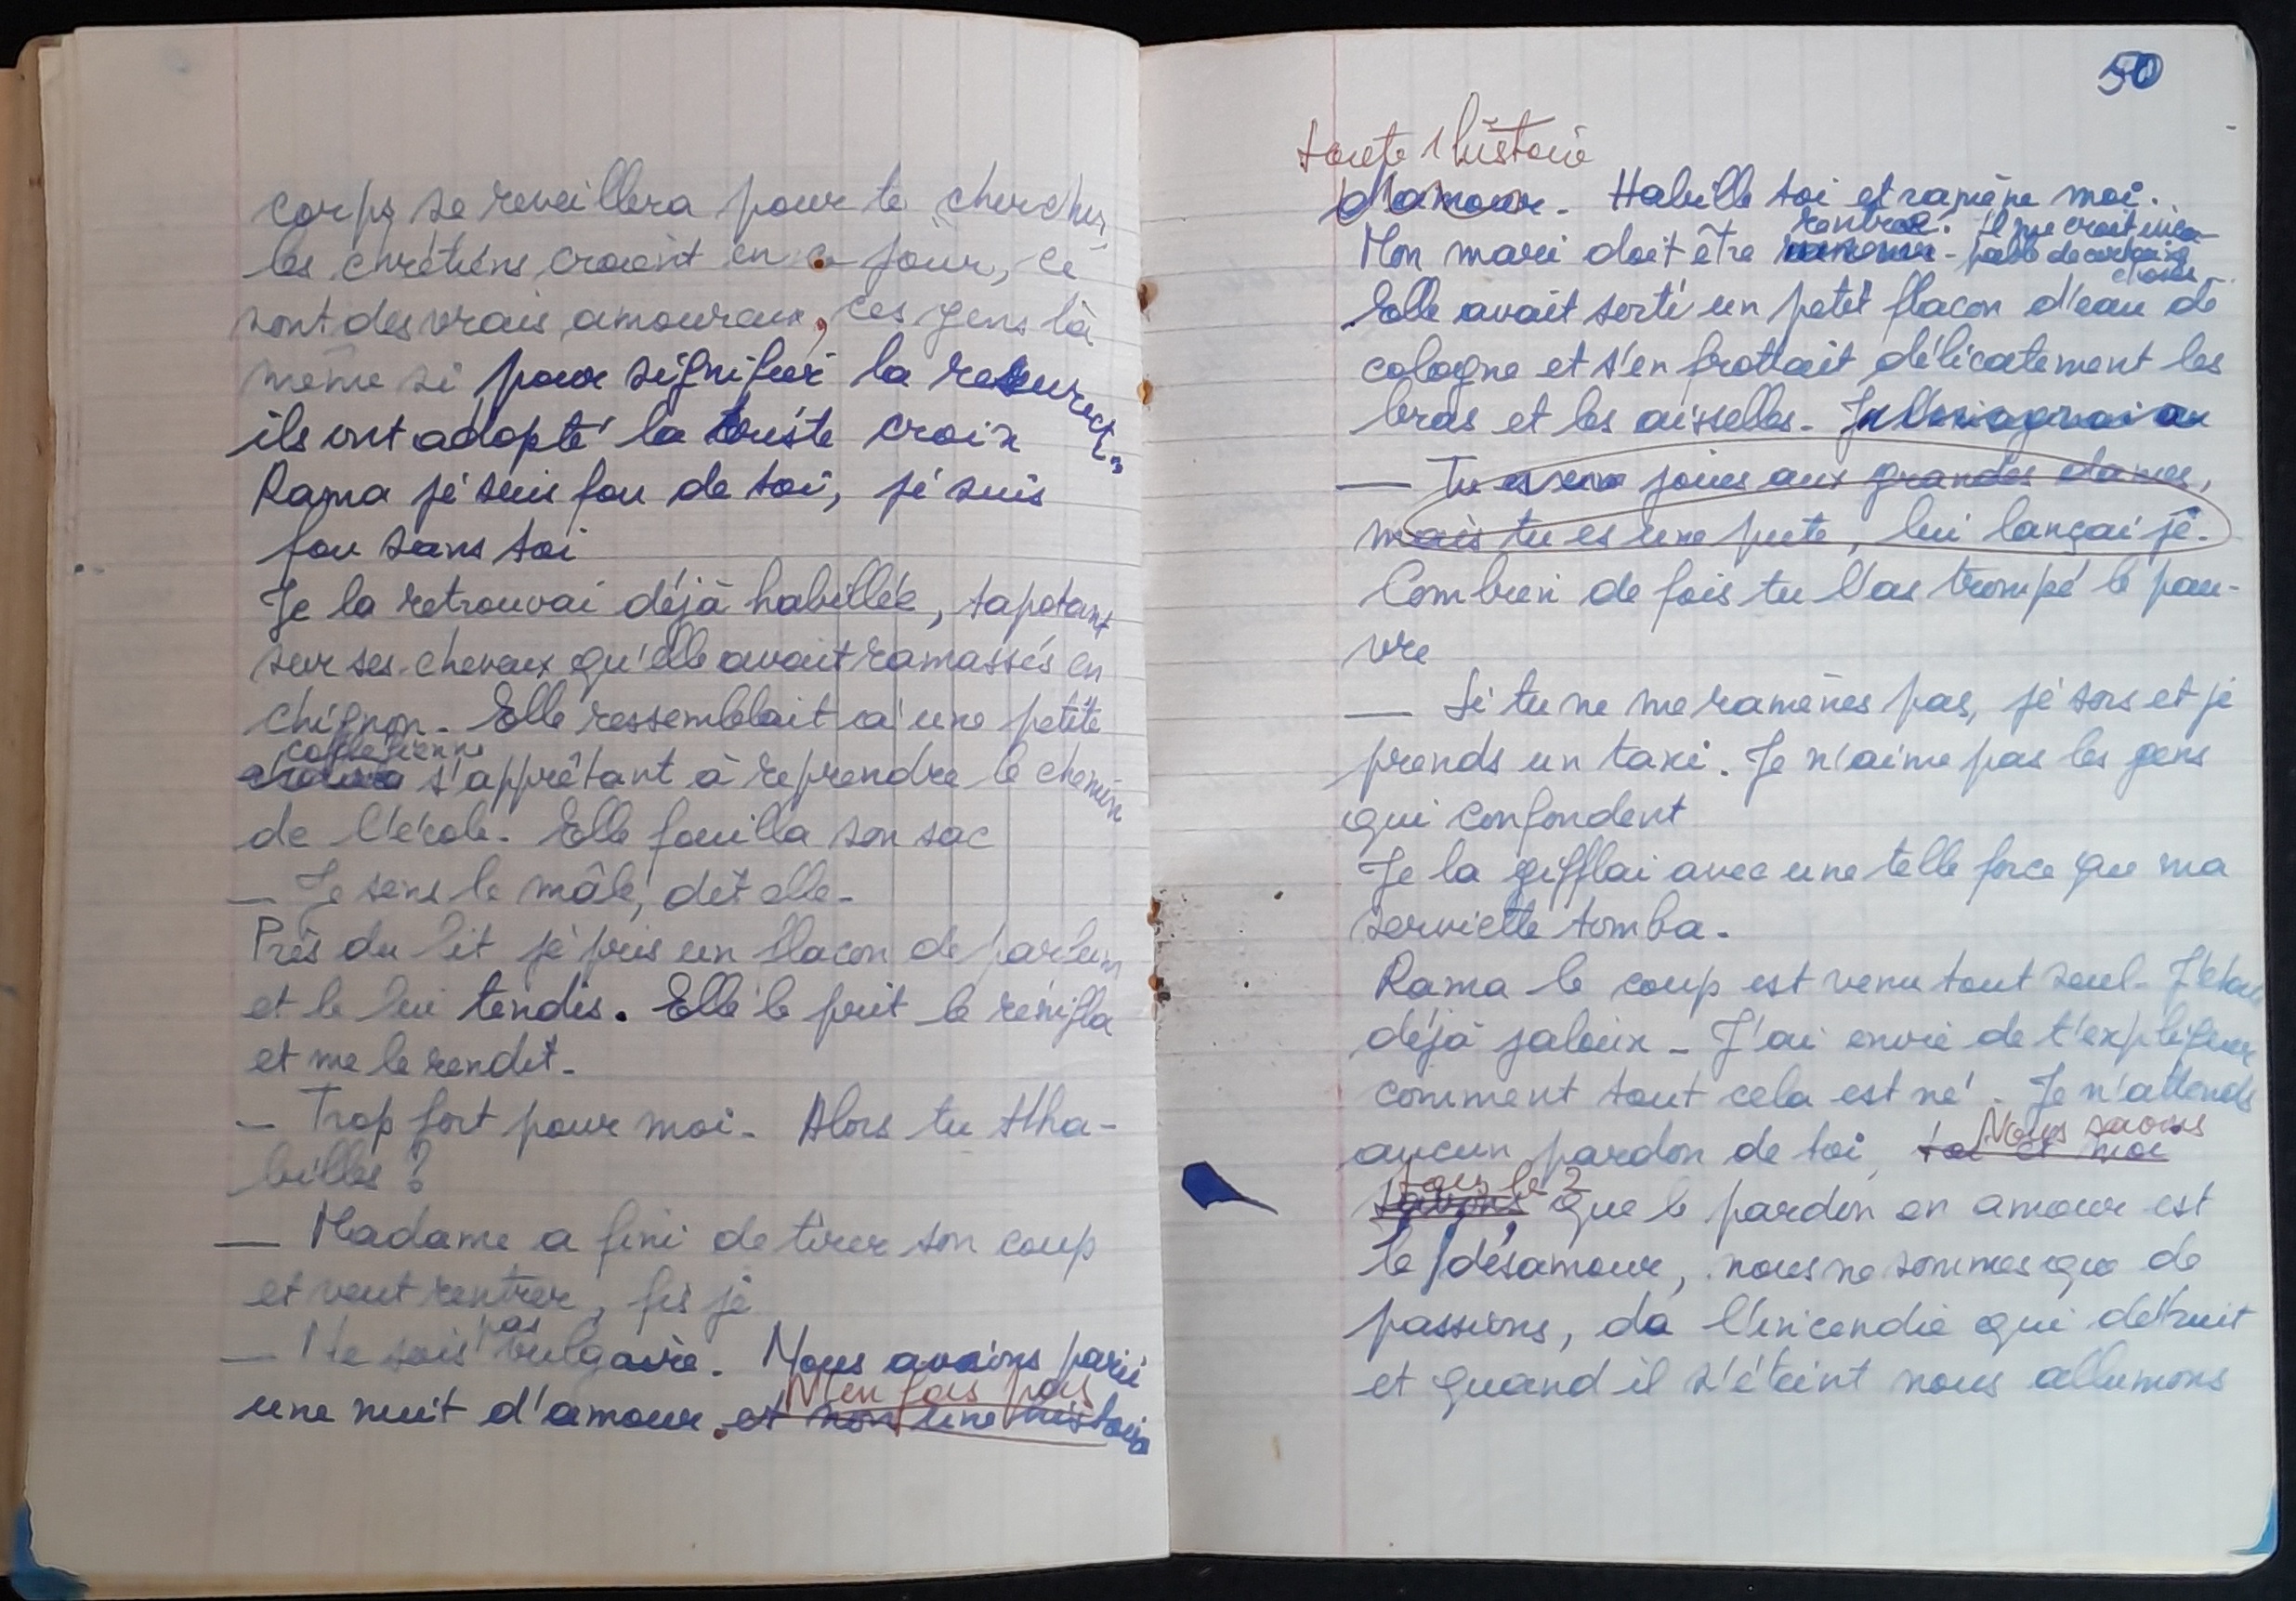 corps se reveillera pour te chercher,
les chrétiens croient en ce jour, ce
sont des vrais amoureux, ces gens là
même si pour signifier la resurect.
ils ont adopté la triste croix
Rama je suis fou de toi, je suis
fou sans toi
Je la retrouvai déjà habillée, tapotant
sur ses cheveux qu'elle avait ramassés en
chignon. Elle ressemblait à une petite
collégienne
s'apprêtant à reprendre le chemin
de l'école. Elle fouilla son sac
— Je sens le mâle, dit elle.
Près du lit je pris un flacon de parfum
et le lui tendis. Elle le prit le renifla
et me le rendit.
— Trop fort pour moi. Alors tu t'ha-
billes ?
— Madame a fini de tirer son coup
et veut rentrer, fis je
pas
— Ne sois vulgaire. Nous avions parié
N'en fais pas
une nuit d'amour. et non une histoire
50
toute 1 histoire
d'amour. Habille toi et ramène moi.
rentré. Il me croit inca-
Mon mari doit être pable de certaines
choses
Elle avait sorti un petit flacon d'eau de
cologne et s'en frottait délicatement les
bras et les aisselles.
— Tu joues aux grandes dames,
mais tu es une pute, lui lançai je.
Combien de fois tu l'as trompé le pau-
vre
— Si tu ne me ramènes pas, je sors et je
prends un taxi. Je n'aime pas les gens
qui confondent
Je la gifflai avec une telle force que ma
serviette tomba.
Rama le coup est venu tout seul. J'étais
déjà jaloux. J'ai envie de t'expliquer
comment tout cela est né. Je n'attends
Nous savons
aucun pardon de toi, toi et moi
tous les 2
savons que le pardon en amour est
le désamour, nous ne sommes que de
passions, da l'incendie qui détruit
et quand il s'éteint nous allumons